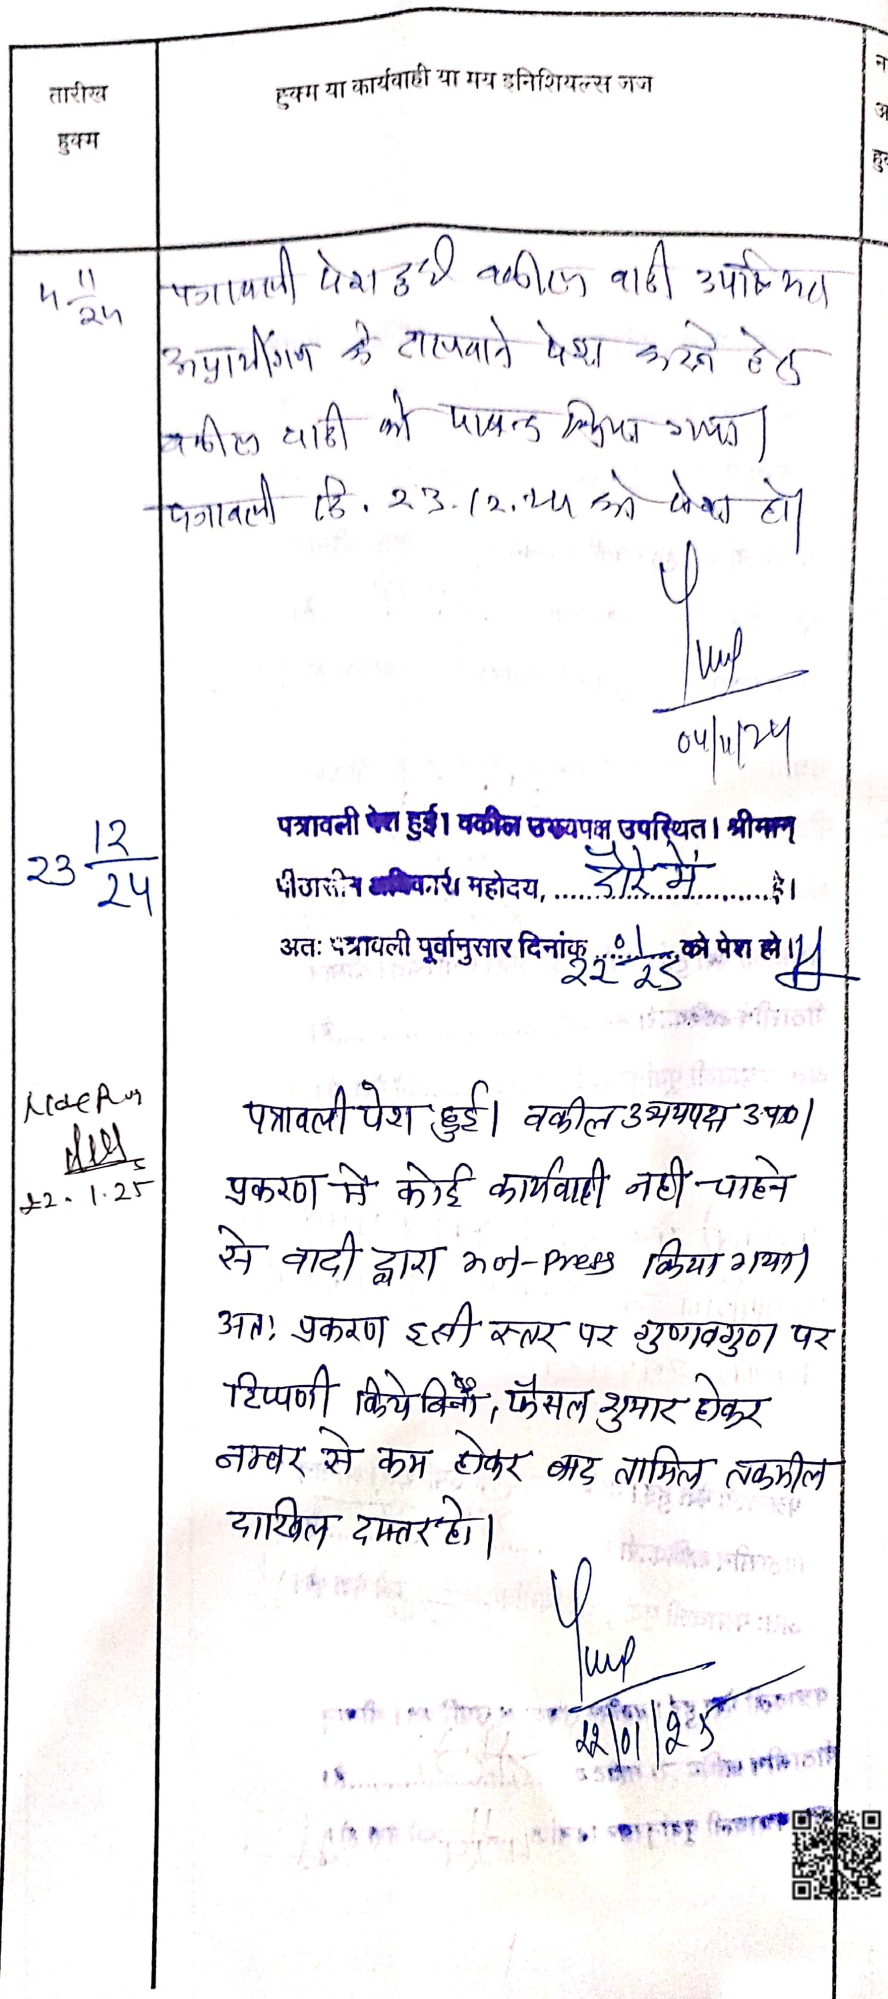 तारीख
हुक्म
हुक्म या कार्यवाही या मय इनिशियल्स जज
न
अ
हु
4 11/24
पत्रावली पेश हुयी वकील वादी उपस्थित
अप्रार्थीगण के तलवाने पेश करने हेतु
वकील वादी को पाबन्द किया गया।
पत्रावली दि. 23.12.24 को पेश हो।
04/11/24
23 12/24
पत्रावली पेश हुई। वकील उभयपक्ष उपस्थित। श्रीमान्
पीठासीन अधिकारी महोदय, ......दौरे में......है।
अतः पत्रावली पूर्वानुसार दिनांक 22 01/25 को पेश हो।
22.1.25
पत्रावली पेश हुई। वकील उभयपक्ष उप०।
प्रकरण मे कोई कार्यवाही नही चाहने
से वादी द्वारा not-press किया गया।
अतः प्रकरण इसी स्तर पर गुणावगुण पर
टिप्पणी किये बिना, फैसल शुमार होकर
नम्बर से कम होकर बाद तामिल तकमील
दाखिल दफ्तर हो।
22/01/25